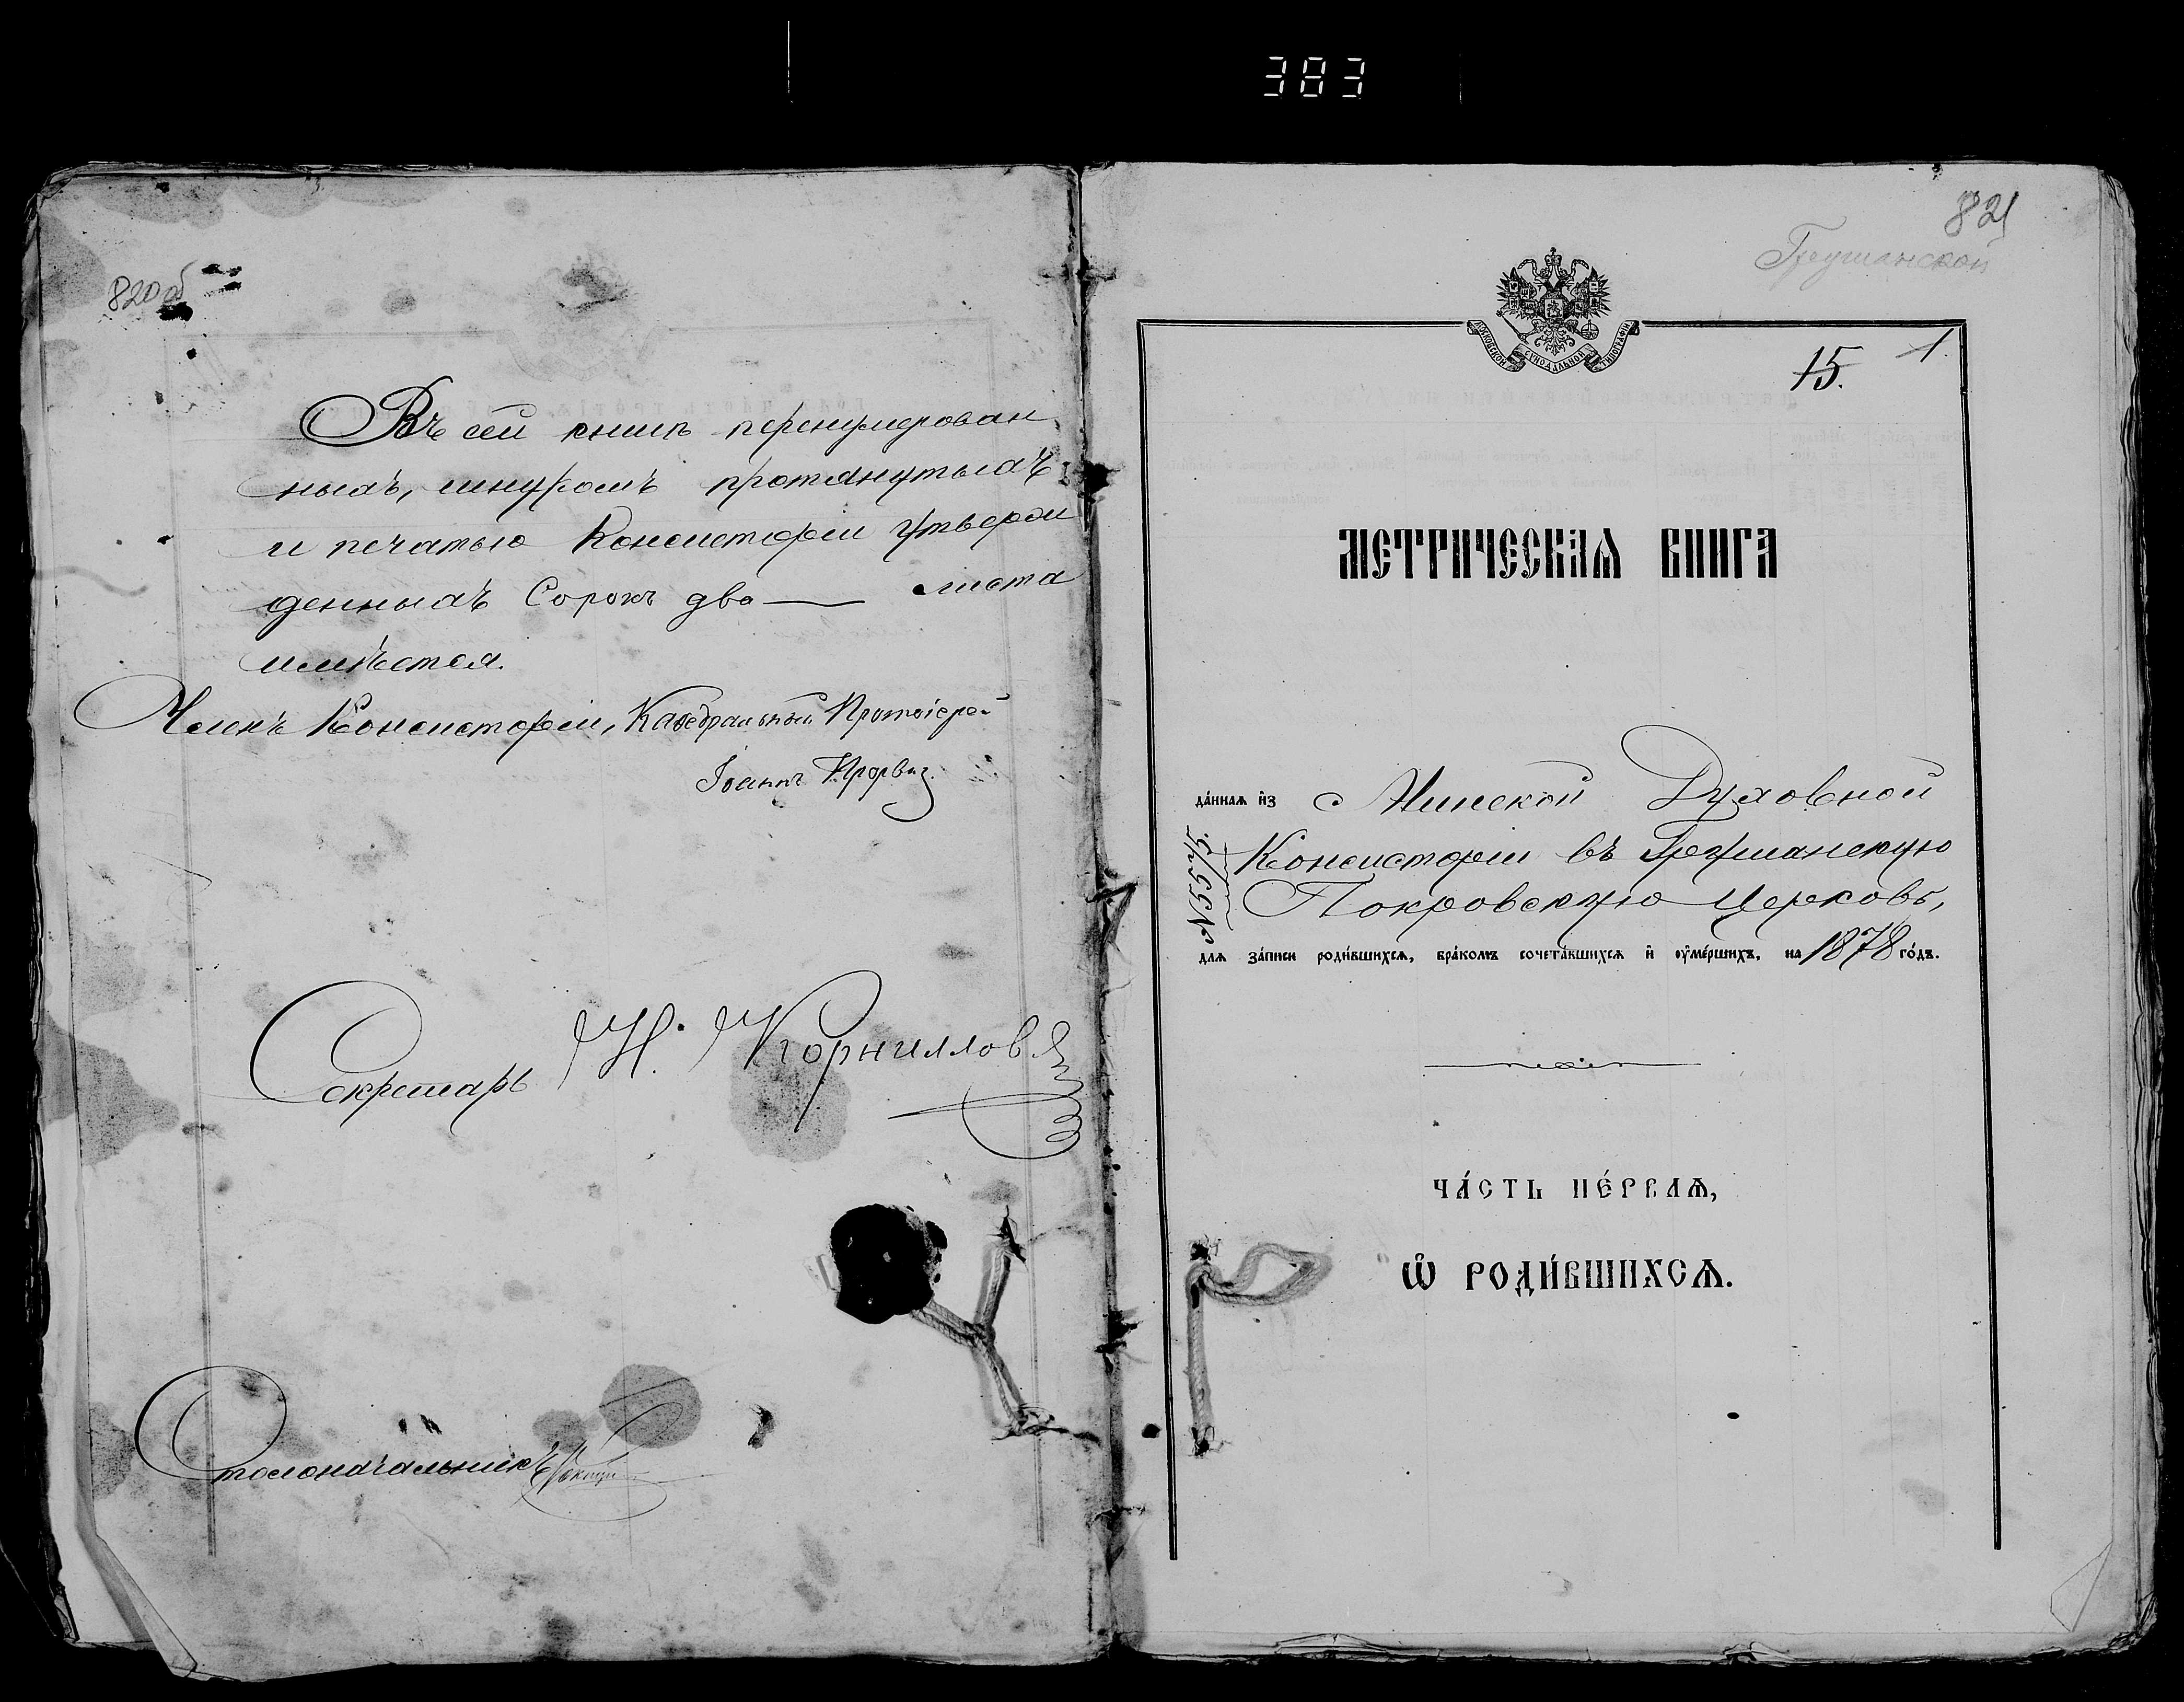 383
820об
Въ сей книгѣ перенумерован
ныхъ, шнуромъ протянутыхъ
и печатью Консисторіи утверж
денныхъ Сорокъ два — листа
имѣется.
Членъ Консисторіи, Каѳедральный Протоіерей
Іоаннъ
Секретарь Н. Корниловъ
Столоначальникъ
821
Грушанской
МОСКОВСКОЙ СѴНОДАЛЬНОЙ ТИПОГРАФІИ
15. 1.
МЕТРИЧЕСКАѦ КНИГА
да́ннаѧ и҆з Минской Духовной
Консисторіи въ Грушанскую
Покровскую Церковь,
длѧ за́писи роди́вшихсѧ, бра́комъ сочета́вшихсѧ и҆ оу҆ме́ршихъ, на 1878 го́дъ.
№ 5575
ЧА́СТЬ ПЕ́РВАѦ,
Ѽ РОДИ́ВШИХСѦ.